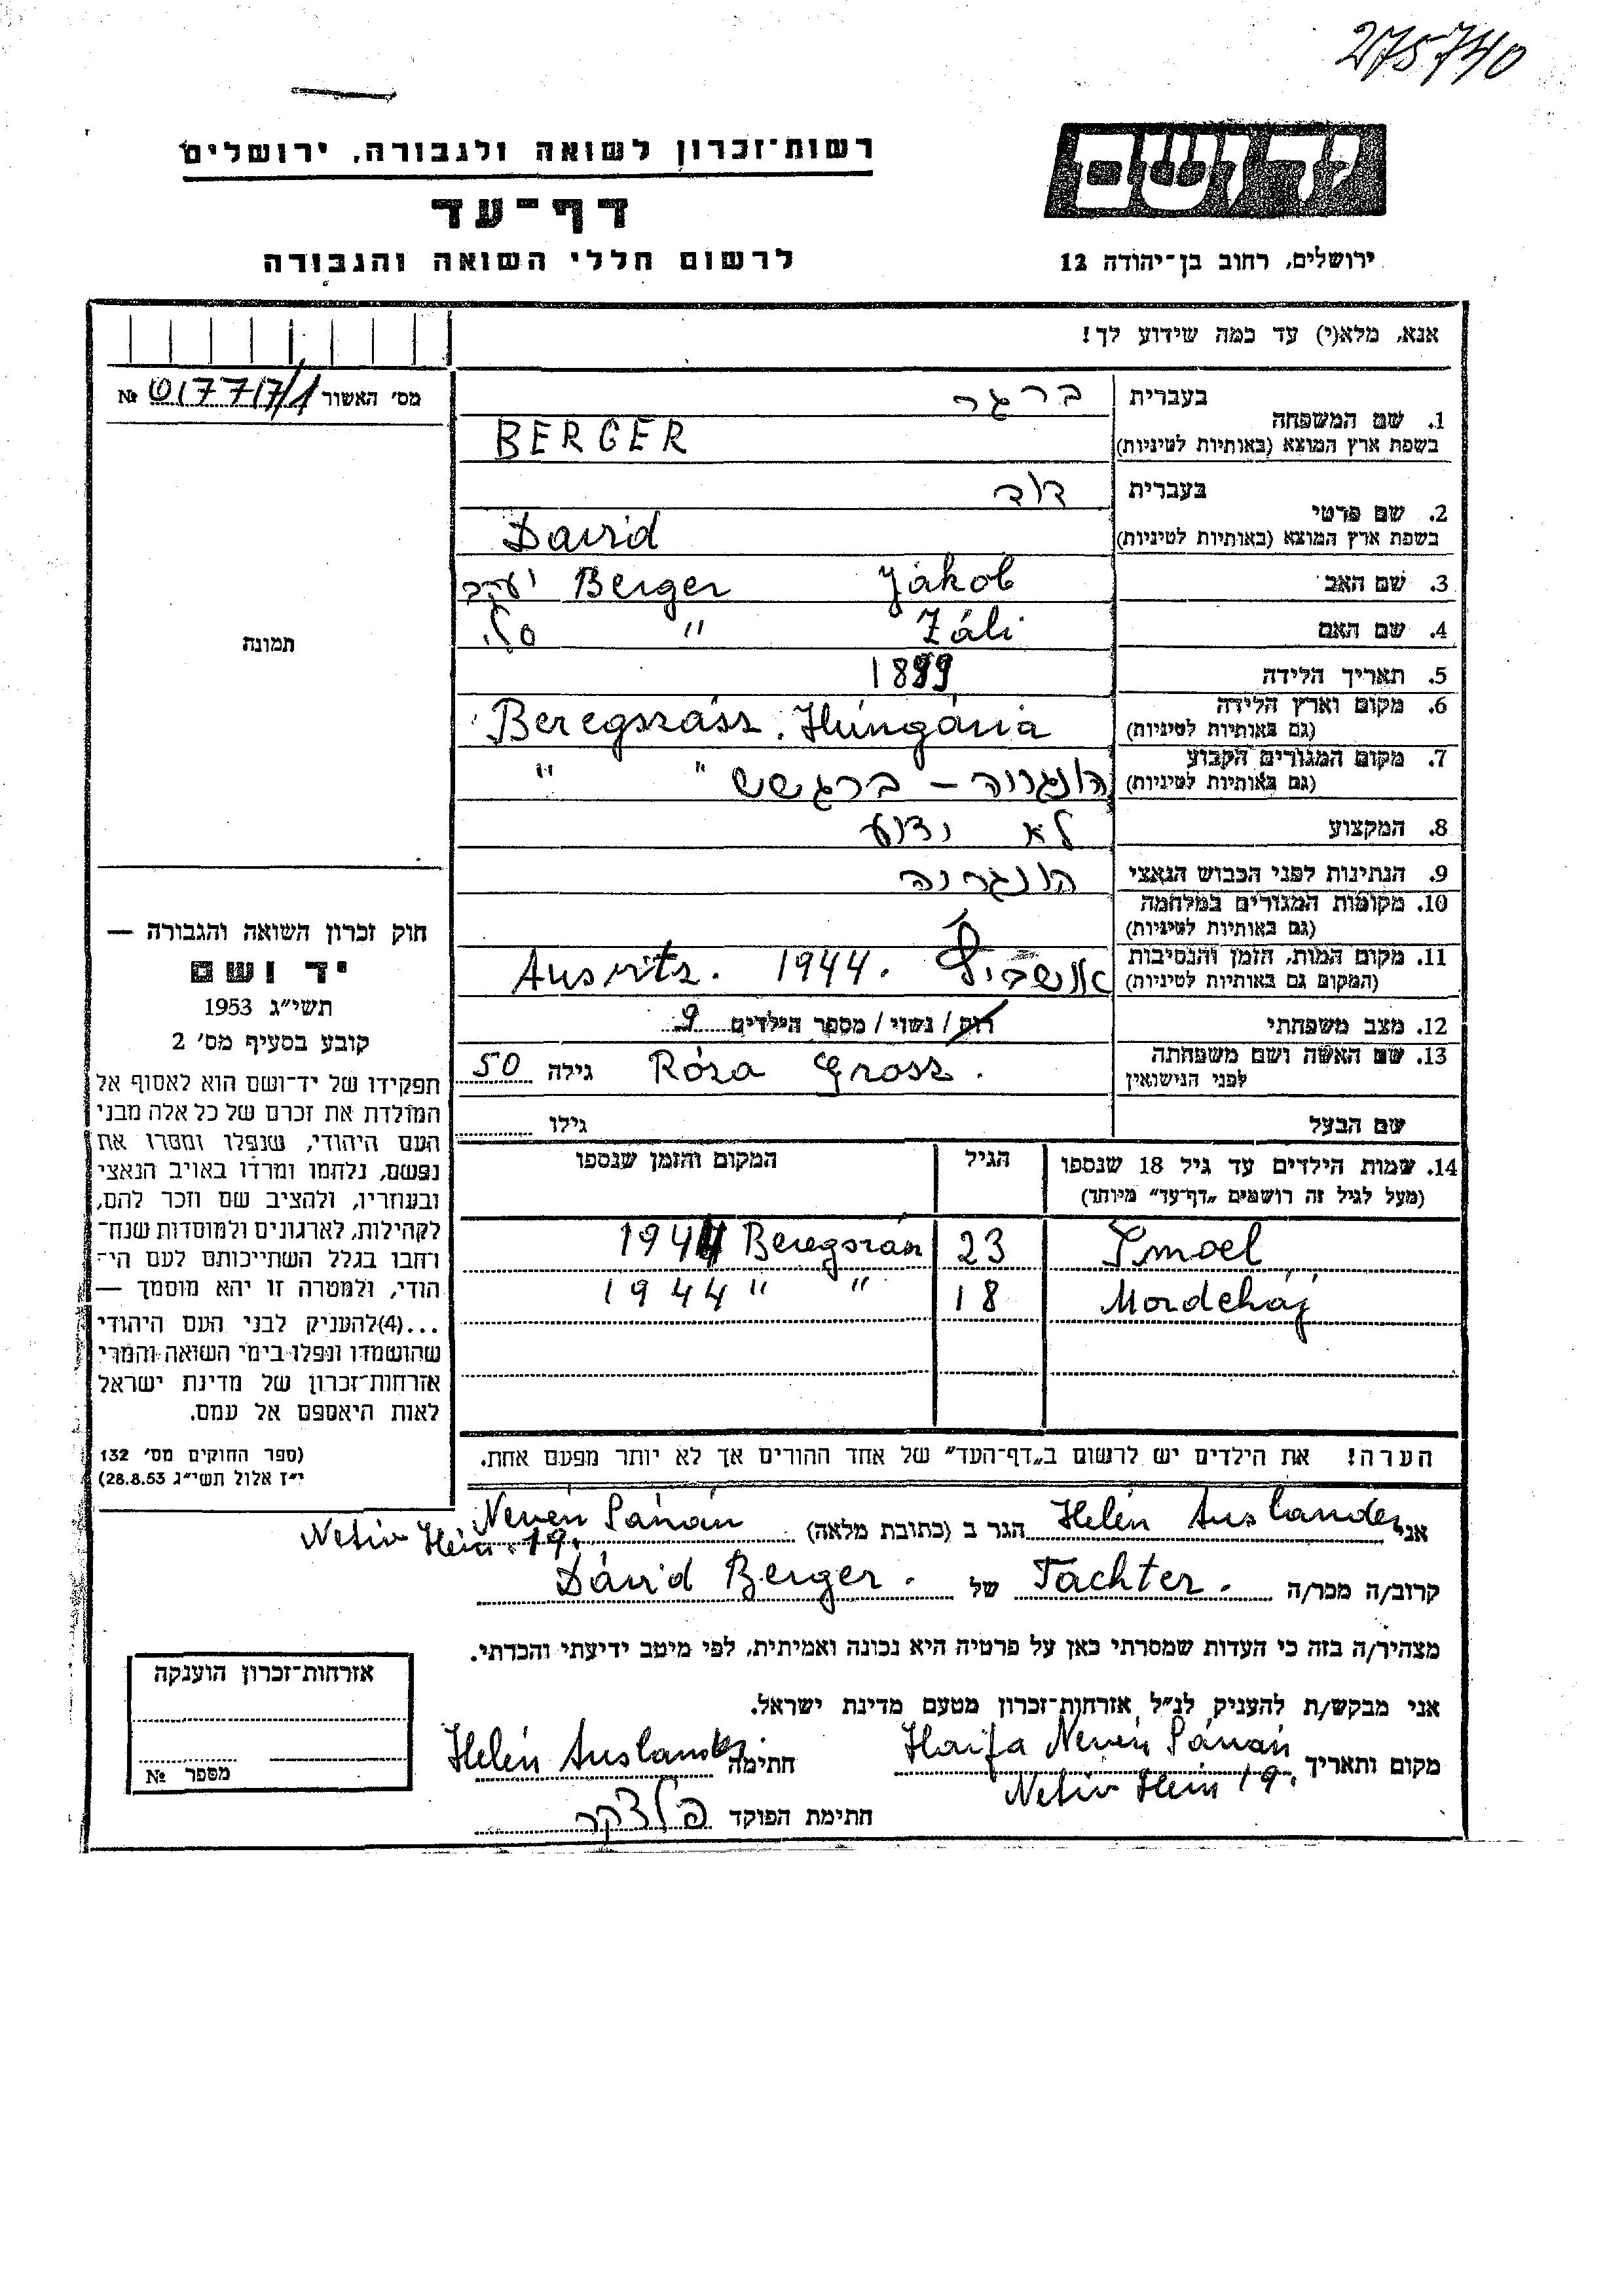 275740
רשות־זכרון לשואה ולגבורה, ירושלים
דף־עד
לרשום חללי השואה והגבורה
יד ושם
ירושלים, רחוב בן־יהודה 12
אנא, מלא(י) עד כמה שידוע לך!
מס׳ האשור № 017717/1
תמונה
1. שם המשפחה בעברית ברגר
בשפת ארץ המוצא (באותיות לטיניות) BERGER
2. שם פרטי בעברית דוד
בשפת ארץ המוצא (באותיות לטיניות) David
3. שם האב Jákob Berger יעקב
4. שם האם Záli "
5. תאריך הלידה 1899
6. מקום וארץ הלידה Beregszász. Hungária
(גם באותיות לטיניות)
7. מקום המגורים הקבוע הונגריה – ברגשש " "
(גם באותיות לטיניות)
8. המקצוע לא ידוע
9. הנתינות לפני הכבוש הנאצי הונגריה
10. מקומות המגורים במלחמה
(גם באותיות לטיניות)
11. מקום המות, הזמן והנסיבות Ausvitz. 1944.
(המקום גם באותיות לטיניות)
12. מצב משפחתי רוק / נשוי / מספר הילדים 9
13. שם האשה ושם משפחתה Róza Grosz. גילה 50
לפני הנישואין
שם הבעל גילו
14. שמות הילדים עד גיל 18 שנספו הגיל המקום והזמן שנספו
(מעל לגיל זה רושמים „דף־עד" מיוחד)
Smoel 23 Beregszász 1944
Mordeháj 18 " " 1944
הערה! את הילדים יש לרשום ב„דף־העד" של אחד ההורים אך לא יותר מפעם אחת.
חוק זכרון השואה והגבורה —
יד ושם
תשי״ג 1953
קובע בסעיף מס׳ 2
תפקידו של יד־ושם הוא לאסוף אל
המולדת את זכרם של כל אלה מבני
העם היהודי, שנפלו ומסרו את
נפשם, נלחמו ומרדו באויב הנאצי
ובעוזריו, ולהציב שם וזכר להם,
לקהילות, לארגונים ולמוסדות שנח־
רבו בגלל השתייכותם לעם הי־
הודי, ולמטרה זו יהא מוסמך —
...(4)להעניק לבני העם היהודי
שהושמדו ונפלו בימי השואה והמרי
אזרחות־זכרון של מדינת ישראל
לאות היאספם אל עמם.
(ספר החוקים מס׳ 132
י״ז אלול תשי״ג 28.8.53)
אני Helén Auslander הגר ב (כתובת מלאה) Neven Sánán
Netiv Hein. 19.
קרוב/ה מכר/ה Tachter. של Dávid Berger.
מצהיר/ה בזה כי העדות שמסרתי כאן על פרטיה היא נכונה ואמיתית, לפי מיטב ידיעתי והכרתי.
אני מבקש/ת להעניק לנ״ל אזרחות־זכרון מטעם מדינת ישראל.
מקום ותאריך Haifa Neven Sánán חתימה Helén Auslander.
Netiv Hein 19.
חתימת הפוקד
אזרחות־זכרון הוענקה
מספר №